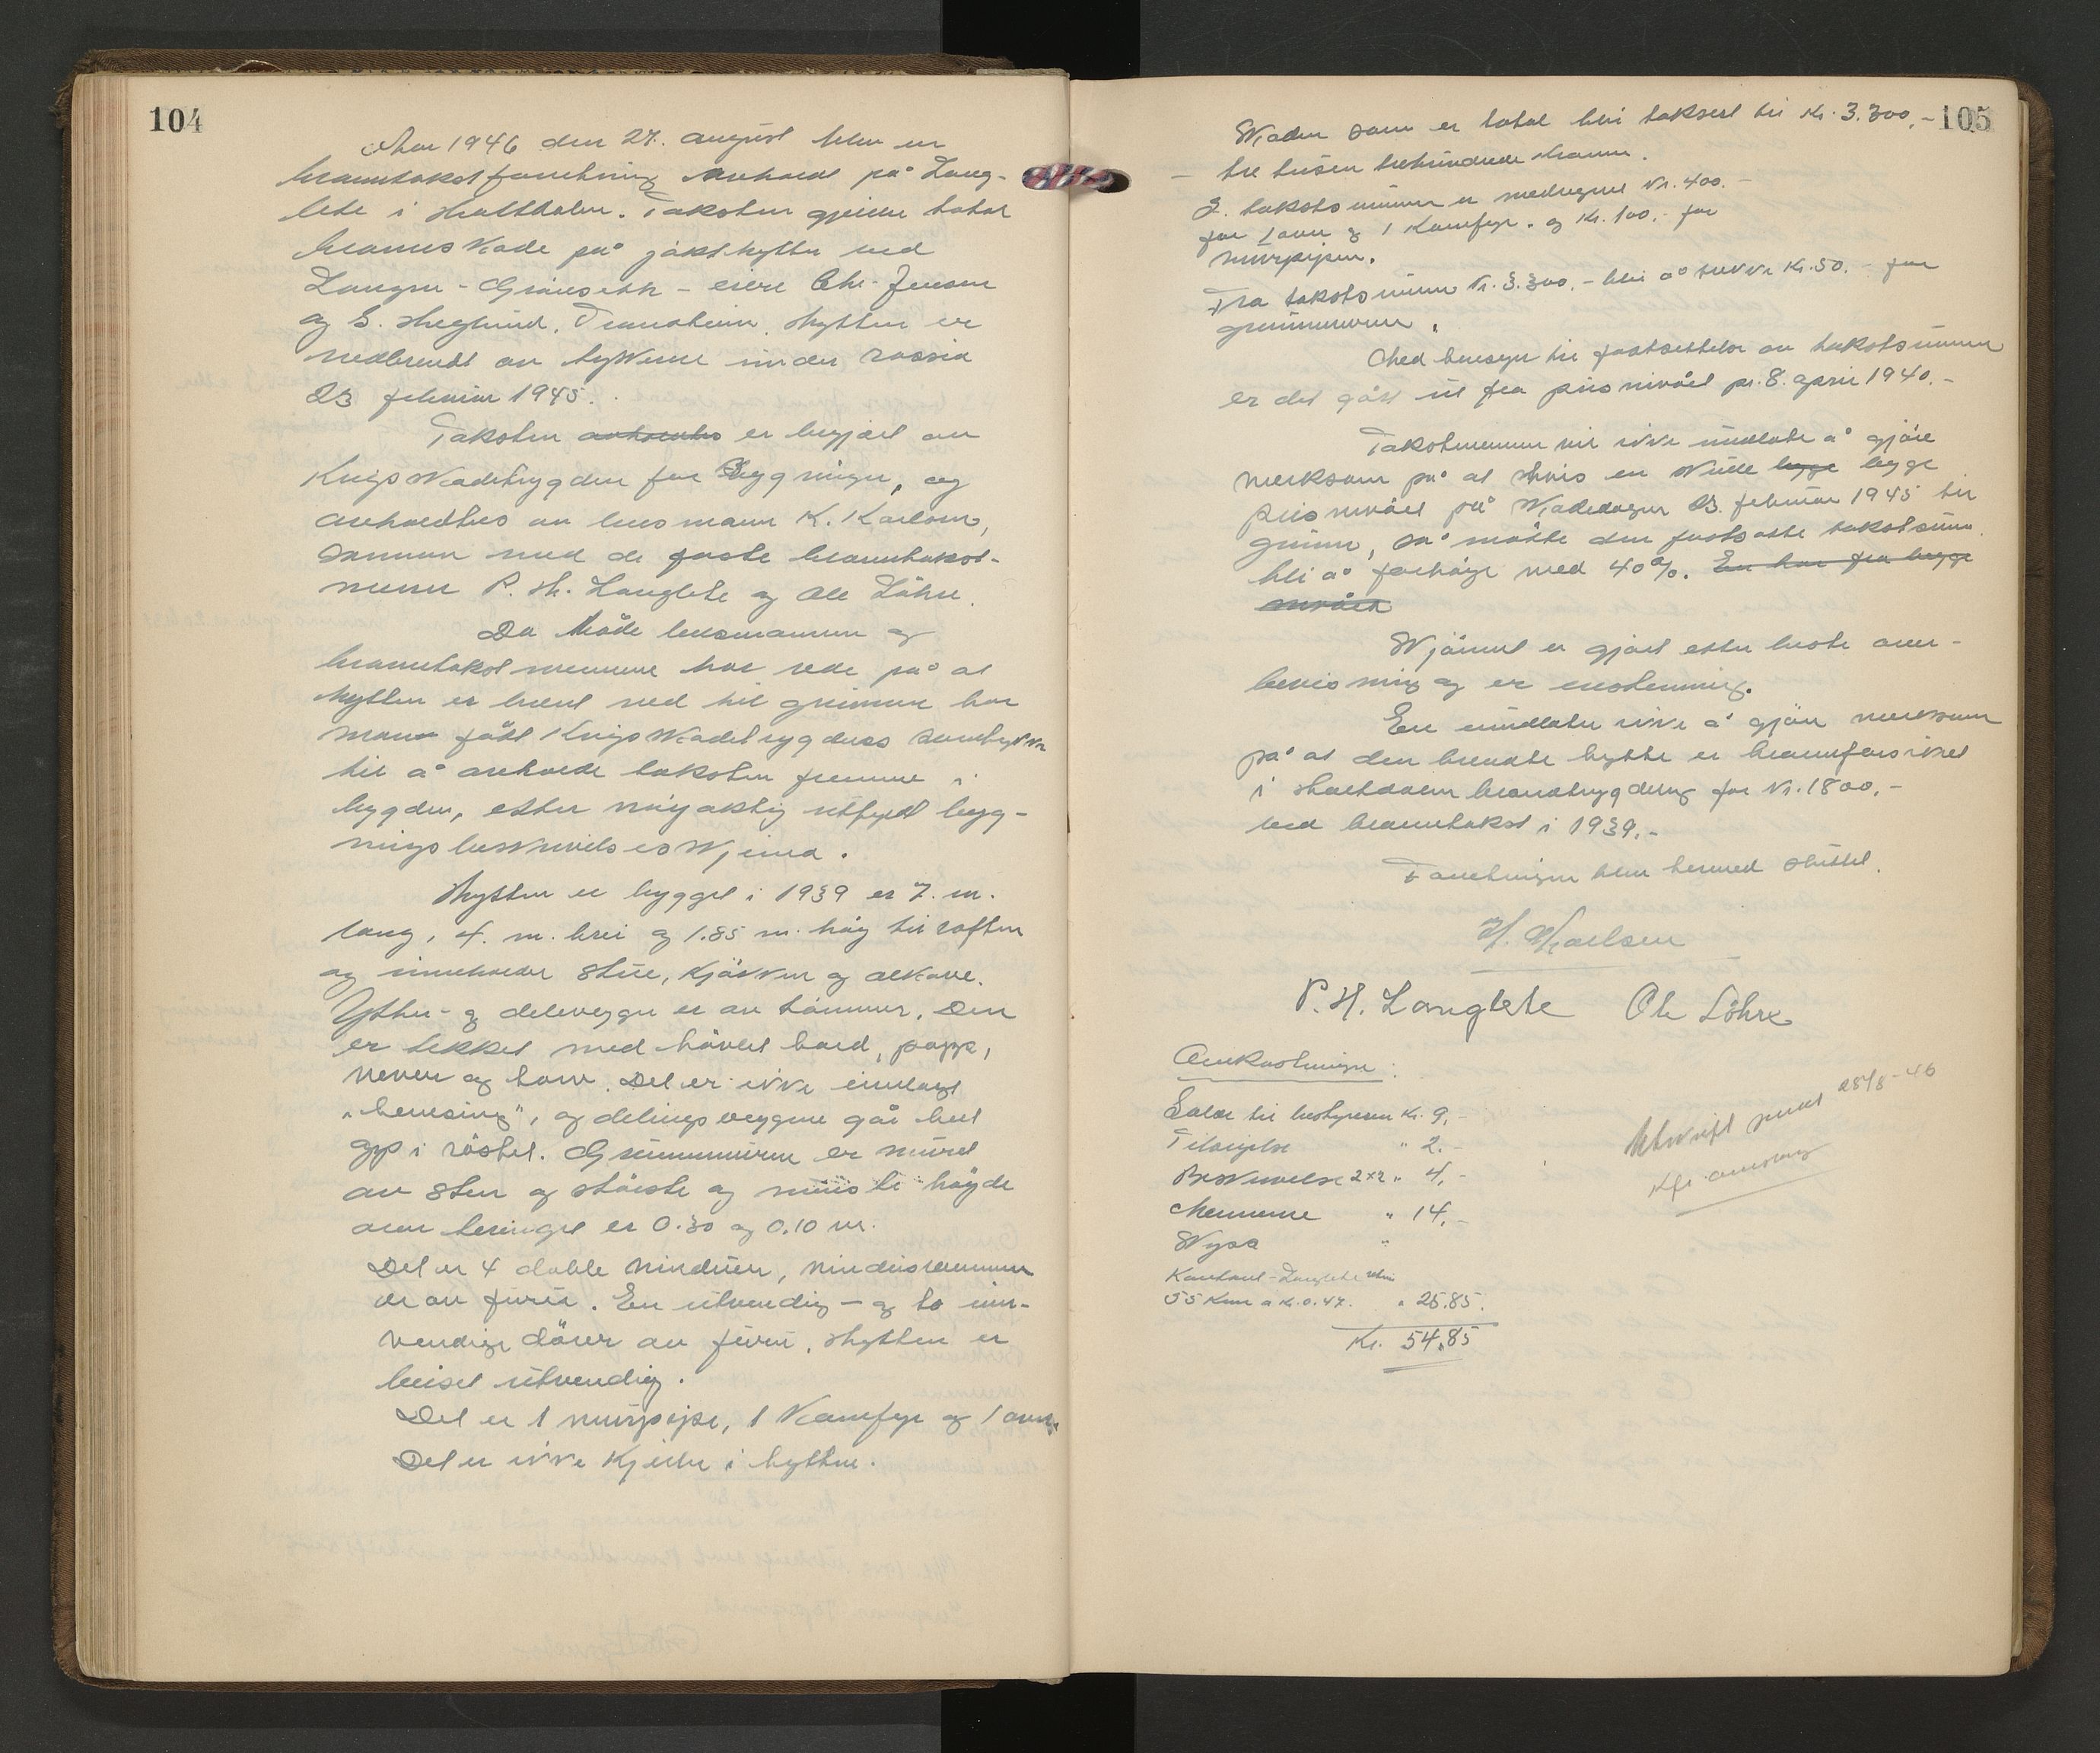 104
Åar 1946 den 27. august blev en
branntakstforretning avholdt på Lang-
lete i Haltdalen. Taksten gjelder total
brannskade på jakthytten ved
Langen - Gråuseth - eiere Chr. Jenson
og E. Heglund, Trondheim. Hytten er
nedbrendt av tyskerne under rassia
23 februar 1945.
Taksten avholdes er begjært av
Krigsskadetrygden for Bygninger, og
avholdtes av lensmann K. Karlsen,
sammen med de faste branntakst-
menn P. H. Langlete og Ole Løhre.
Da både lensmannen og
branntakstmennene har rede på at
hytten er brent ned til grunnen har
man fått Krigsskadetrygdens samtykke
til å avholde taksten fremme i
bygden, etter nøyaktig utfyllt byg-
ningsbeskrivelsesskjema.
Hytten er bygget i 1939 er 7. m.
lang, 4. m. brei og 1.85 m. høy til raften
og inneholder stue, kjøkken og alkove.
Ytter- og delevegger er av tømmer. Den
er tekket med høvlet bord, papp,
never og torv. Det er ikke innlagt
"hensing", og delingsveggene går helt
opp i røstet. Grunnmuren er muret
av sten og største og minste høyde
over terrenget er 0.30 og 0.10 m.
Det er 4 doble vinduer, vindusrammer
er av furu. En utvendig - og to inn-
vendige dører av furu. Hytten er
beiset utvendig.
Det er 1 murpipe, 1 Kamfyr og 1 ovn.
Det er ikke kjeller i hytten.
105
Skaden som er total blei taksert til Kr. 3.300,-
- tre tusen trehundrede kroner.
I takstsummen er medregnet Kr. 400.-
for 1 ovn og 1 Kamfyr. og Kr. 100.- for
murpipen.
Fra takstsummen Kr. 3.300.- blei å trekke Kr. 50.- for
grunnmuren.
Med hensyn til fastsettelse av takstsummen
er det gått ut fra prisnivået pr. 8. april 1940.-
Takstmennene vil ikke unnlate å gjøre
merksam på at hvis en skulle legge legge
prisnivået på skadedagen 23. februar 1945 til
grunn, så måtte den fastsatte takstsum
bli å forhøye med 40%. En har fra begge
nivåen
Skjønnet er gjort etter beste over-
bevisning og er enstemmig.
En unnlater ikke å gjøre merksam
på at den brendte hytte er brannforsikret
i Haltdalen branntrygdelag for Kr. 1800,-
ved branntakst i 1939.-
Forretningen blev hermed sluttet.
K. Karlsen
P. H. Langlete Ole Löhre
Omkostninger:
Salær til bestyreren Kr. 9,-
Tilsigelse " 2.-
Beskrivelse 2x2 " 4,-
Mennene " 14,-
Skyss "
Kontoret - Langlete retur
55 km a Kr. 0.47. " 25.85.
Kr. 54.85
Utskrift sendt 28/8-46
Kfr. omslag